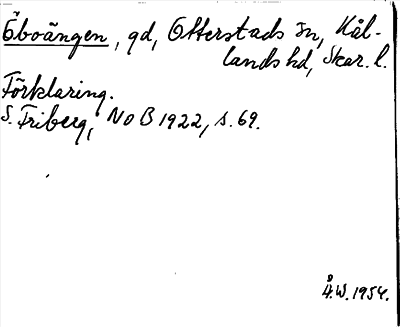 Öboängen, gd, Otterstads sn, Kål-
landshd, Skar. l.
Förklaring.
S. Friberg, NoB 1922, s. 69.
Å.W. 1954.